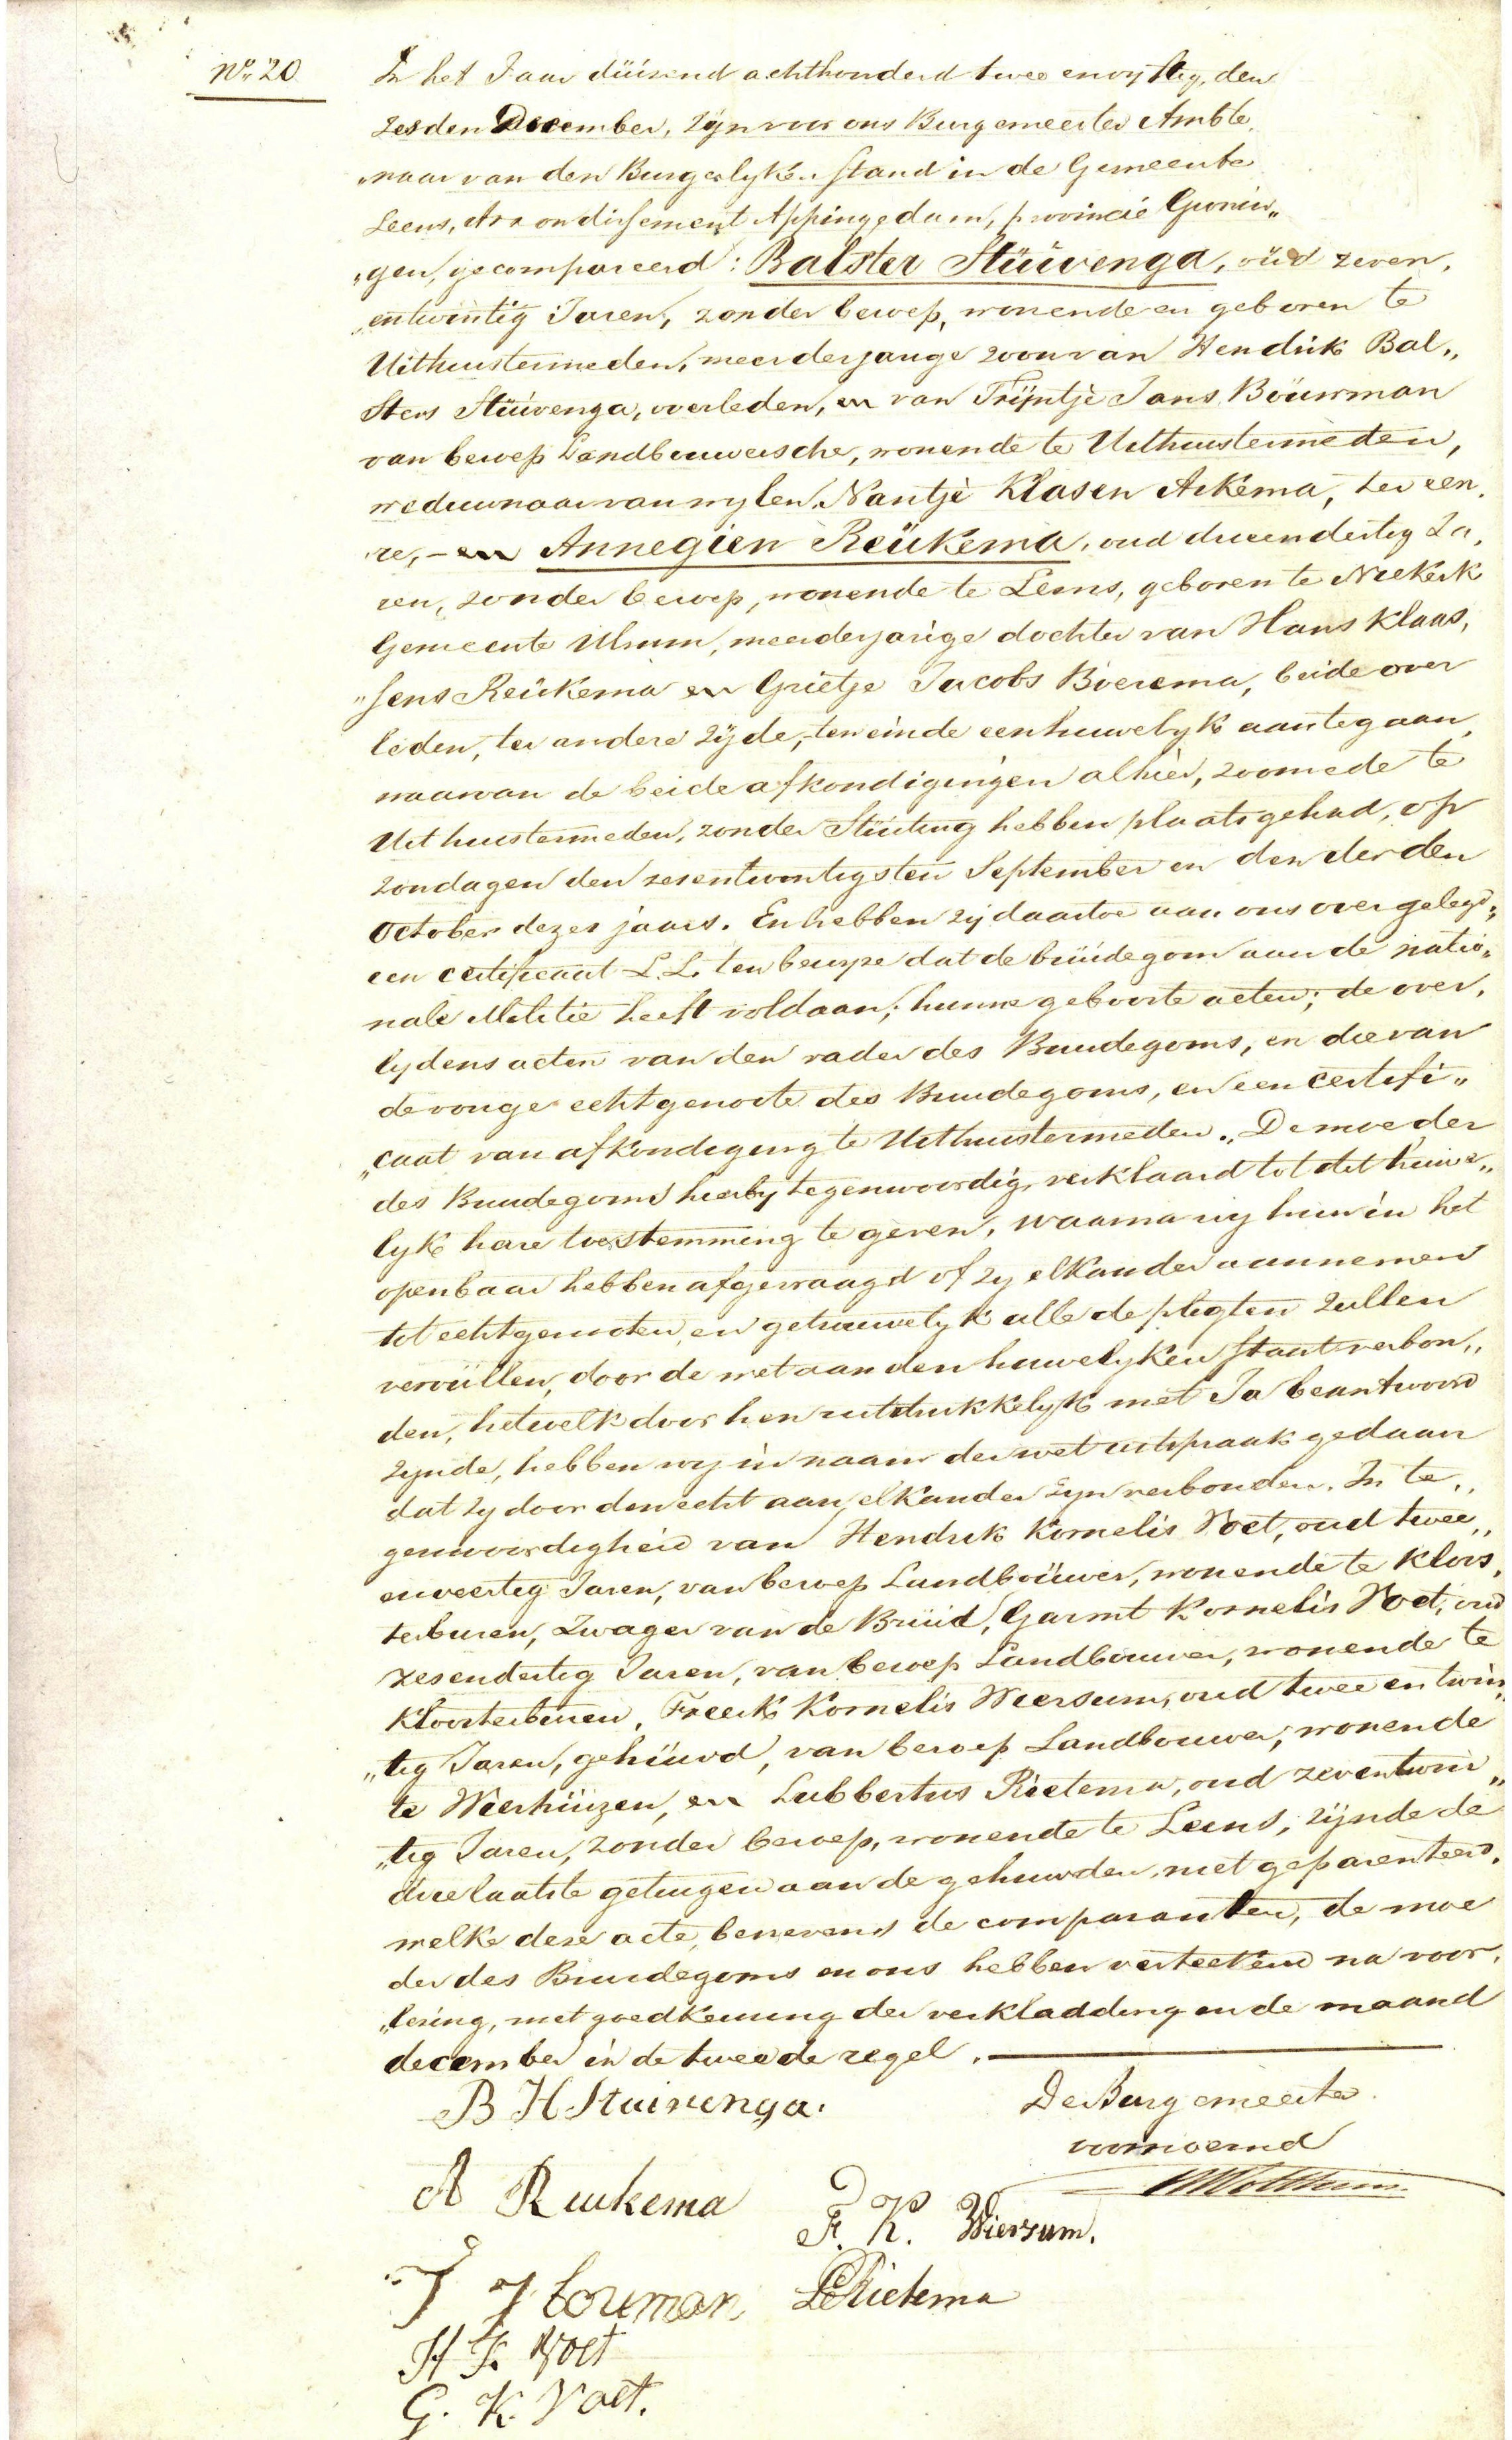 No. 20
In het Jaar düizend achthonderd twee envyftig, den
zesden December, zyn voor ons Burgemeester Ambte„
„naar van den Burgerlyken stand in de Gemeente
Leens, Arrondissement Appingedam, provincie Gronin„
„gen, gecompareerd: Balster Stüivenga, oüd zeven„
„entwintig Jaren, zonder beroep, wonende en geboren te
Uithuistermeden, meerderjarige zoon van Hendrik Bal„
sters Stüivenga, overleden, en van Trijntje Jans Böuwman
van beroep Landbouwersche, wonende te Uithuistermeden,
weduwnaar van wylen Nantje Klasen Arkema, ter een„
re, – en Annegien Reükema, oud drieendertig Ja„
ren, zonder beroep, wonende te Leens, geboren te Niekerk
Gemeente Ulrum, meerderjarige dochter van Hans Klaas„
„sens Reükema en Grietje Jacobs Boerema, beide over
leden, ter andere zÿde, ten einde een huwelyk aantegaan,
waarvan de beide afkondigingen alhier, zoomede te
Uithuistermeden, zonder Stüiting hebben plaats gehad, op
zondagen den zesentwintigsten September en den derden
October dezes jaars. En hebben zy daartoe aan ons overgelegd„
een certificaat L. L. ten bewyze dat de brüidegom aan de natio„
nale Militie heeft voldaan; hunne geboorte acten; de over„
lydens acten van den vader des Bruidegoms, en die van
de vorige echtgenoote des Bruidegoms, en een certifi„
„caat van afkondiging te Uithuistermeden. De moeder
des Bruidegoms hierby tegenwoordig, verklaard tot dit huwe„
lyk hare toestemming te geven, waarna wy hun in het
openbaar hebben afgevraagd of zy elkander aannemen
tot echtgenoten, en getrouwelyk alle de pligten zullen
vervüllen, door de wet aan den huwelyken staat verbon„
den, hetwelk door hen uitdrukkelyk met Ja beantwoord
zynde, hebben wy in naam der wet uitspraak gedaan
dat zy door den echt aan elkander zyn verbonden. In te„
genwoordigheid van Hendrik Kornelis Voet, oud twee„
enveertig Jaren, van beroep Landboüwer, wonende te Kloos„
terburen, Zwager van de Brüid, Garmt Kornelis Voet, oud
zesendertig Jaren, van beroep Landbouwer, wonende te
Kloosterburen, Freerk Kornelis Wiersum, oud twee en twin„
„tig Jaren, gehüwd, van beroep Landbouwer, wonende
te Wierhüizen, en Lubbertus Rietema, oud zeventwin„
„tig Jaren, zonder beroep, wonende te Leens, zÿnde de
drie laatste getuigen aan de gehuwden niet geparenteerd,
welke deze acte, benevens de comparanten, de moe
der des Bruidegoms en ons hebben verteekend na voor„
„lezing, met goedkeuring der verkladding en de maand
december in de tweede regel.
B H Stuivenga.
De Burgemeester
voornoemd
A Reukema
F. K. Wiersum.
T J bouman
L Rietema
H K Voet
G. K. Voet.